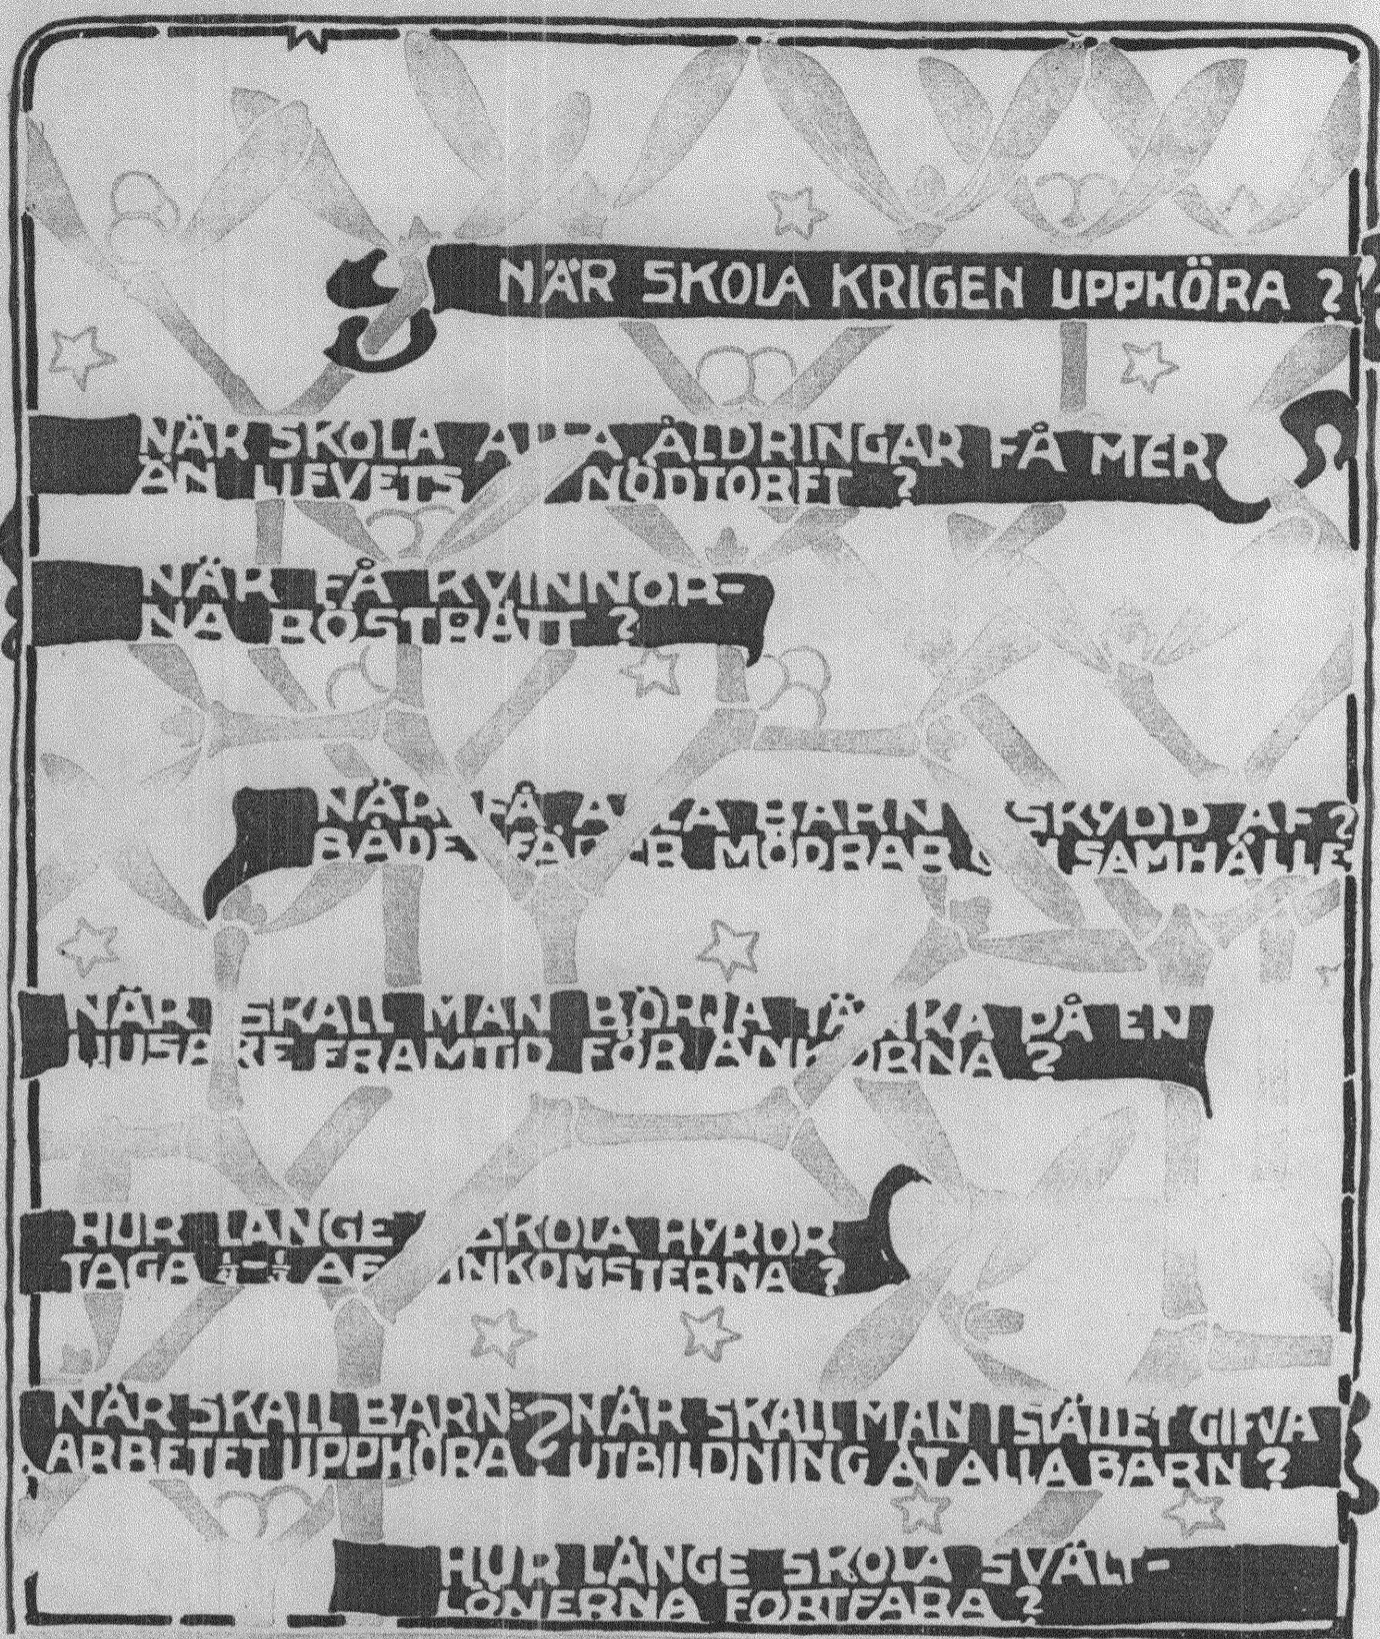 NÄR SKOLA KRIGEN UPPHÖRA ?
NÄR SKOLA ALLA ÅLDRINGAR FÅ MER
ÄN LIFVETS NÖDTORFT ?
NÄR FÅ KVINNOR-
NA RÖSTRÄTT ?
NÄR FÅ ALLA BARN SKYDD AF ?
BÅDE FÄDER MÖDRAR OCH SAMHÄLLE
NÄR SKALL MAN BÖRJA TÄNKA PÅ EN
LJUSARE FRAMTID FÖR ÄNKORNA ?
HUR LÄNGE SKOLA HYROR
TAGA ¼-⅓ AF INKOMSTERNA ?
NÄR SKALL BARN= ? NÄR SKALL MAN I STÄLLET GIFVA
ARBETET UPPHÖRA UTBILDNING ÅT ALLA BARN ?
HUR LÄNGE SKOLA SVÄLT-
LÖNERNA FORTFARA ?